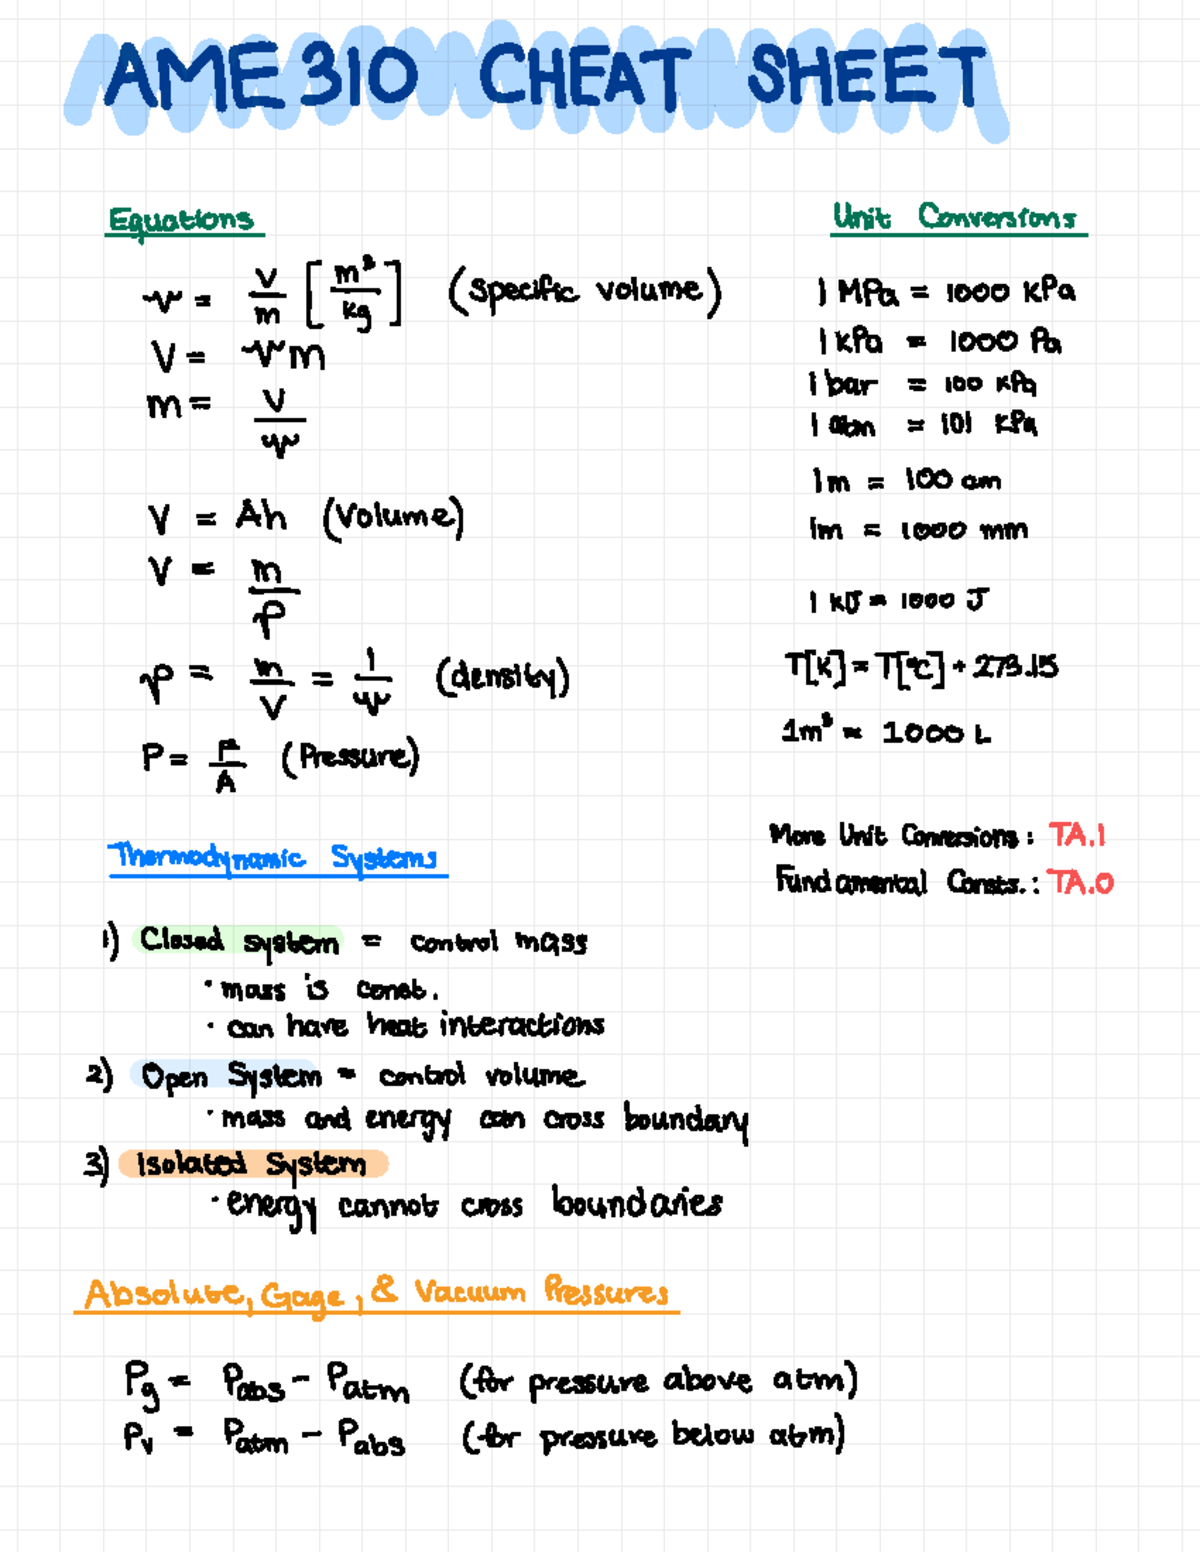 AME 310 CHEAT SHEET
Equations
v = V/m [m³/kg] (specific volume)
V = vm
m = V/v
V = Ah (Volume)
V = m/ρ
ρ = m/V = 1/v (density)
P = F/A (Pressure)
Unit Conversions
1 MPa = 1000 kPa
1 kPa = 1000 Pa
1 bar = 100 kPa
1 atm = 101 kPa
1m = 100 cm
1m = 1000 mm
1 kJ = 1000 J
T[K] = T[°C] + 273.15
1m³ = 1000 L
More Unit Conversions: TA.1
Fundamental Consts.: TA.0
Thermodynamic Systems
1) Closed system = control mass
· mass is const.
· can have heat interactions
2) Open System = control volume
· mass and energy can cross boundary
3) Isolated System
· energy cannot cross boundaries
Absolute, Gage, & Vacuum Pressures
Pg = Pabs - Patm (for pressure above atm)
Pv = Patm - Pabs (for pressure below atm)